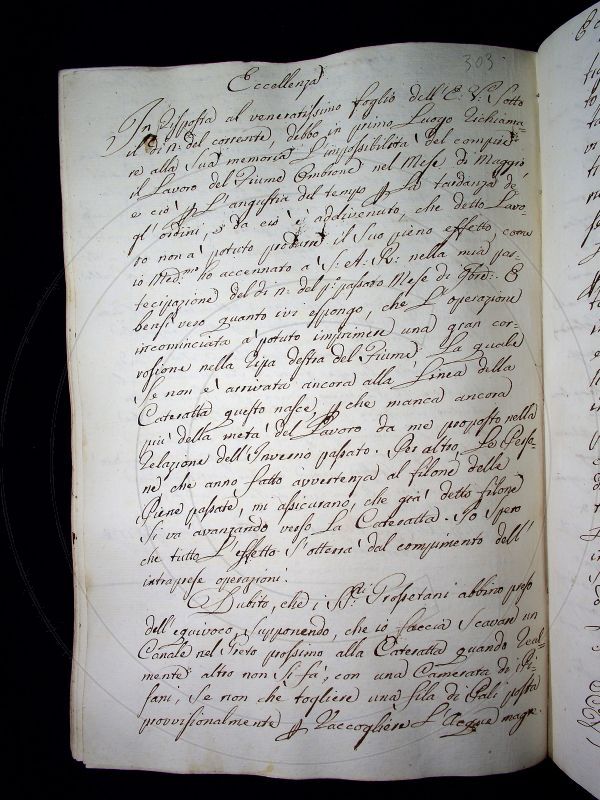 303
Eccellenza
In Risposta al veneratissimo foglio dell'E: V: Sotto
il dì n: del corrente, debbo in primo Luogo richiama=
re alla Sua memoria L'impossibilità del compire
il Lavoro del Fiume Ombrone nel Mese di Maggio
e ciò p L'angustia del tempo p La tardanza de
gl'ordini, e da ciò è addivenuto, che detto Lavo=
ro non à potuto produrre il Suo pieno effetto, come
io Med:mo ho accennato a S: A: R: nella mia par=
tecipazione del dì n: del p: passato Mese di 9bre: È
bensì vero quanto ivi espongo, che L'operazione
incominciata à potuto imprimere una gran cor=
rosione nella ripa destra del Fiume. La quale
Se non è arrivata ancora alla Linea della
Cateratta questo nasce, p che manca ancora
più della metà del Lavoro da me proposto nella
relazione dell'Inverno passato. Per altro, Le Perso=
ne che anno fatto avvertenza al filone delle
Piene passate, mi assicurano, che già detto filone
Si va avanzando verso La Cateratta. Io Spero
che tutto L'effetto S'otterrà dal compimento dell'
intraprese operazioni.
Dubito, che i SS:ri Grossetani abbino preso
dell'equivoco, Supponendo, che io faccia Scavare un
Canale nel Greto prossimo alla Cateratta quando real=
mente altro non Si fà, con una Camerata di Pi=
sani, Se non che togliere una fila di Pali posta
provvisionalmente p Raccogliere L'Acque magre